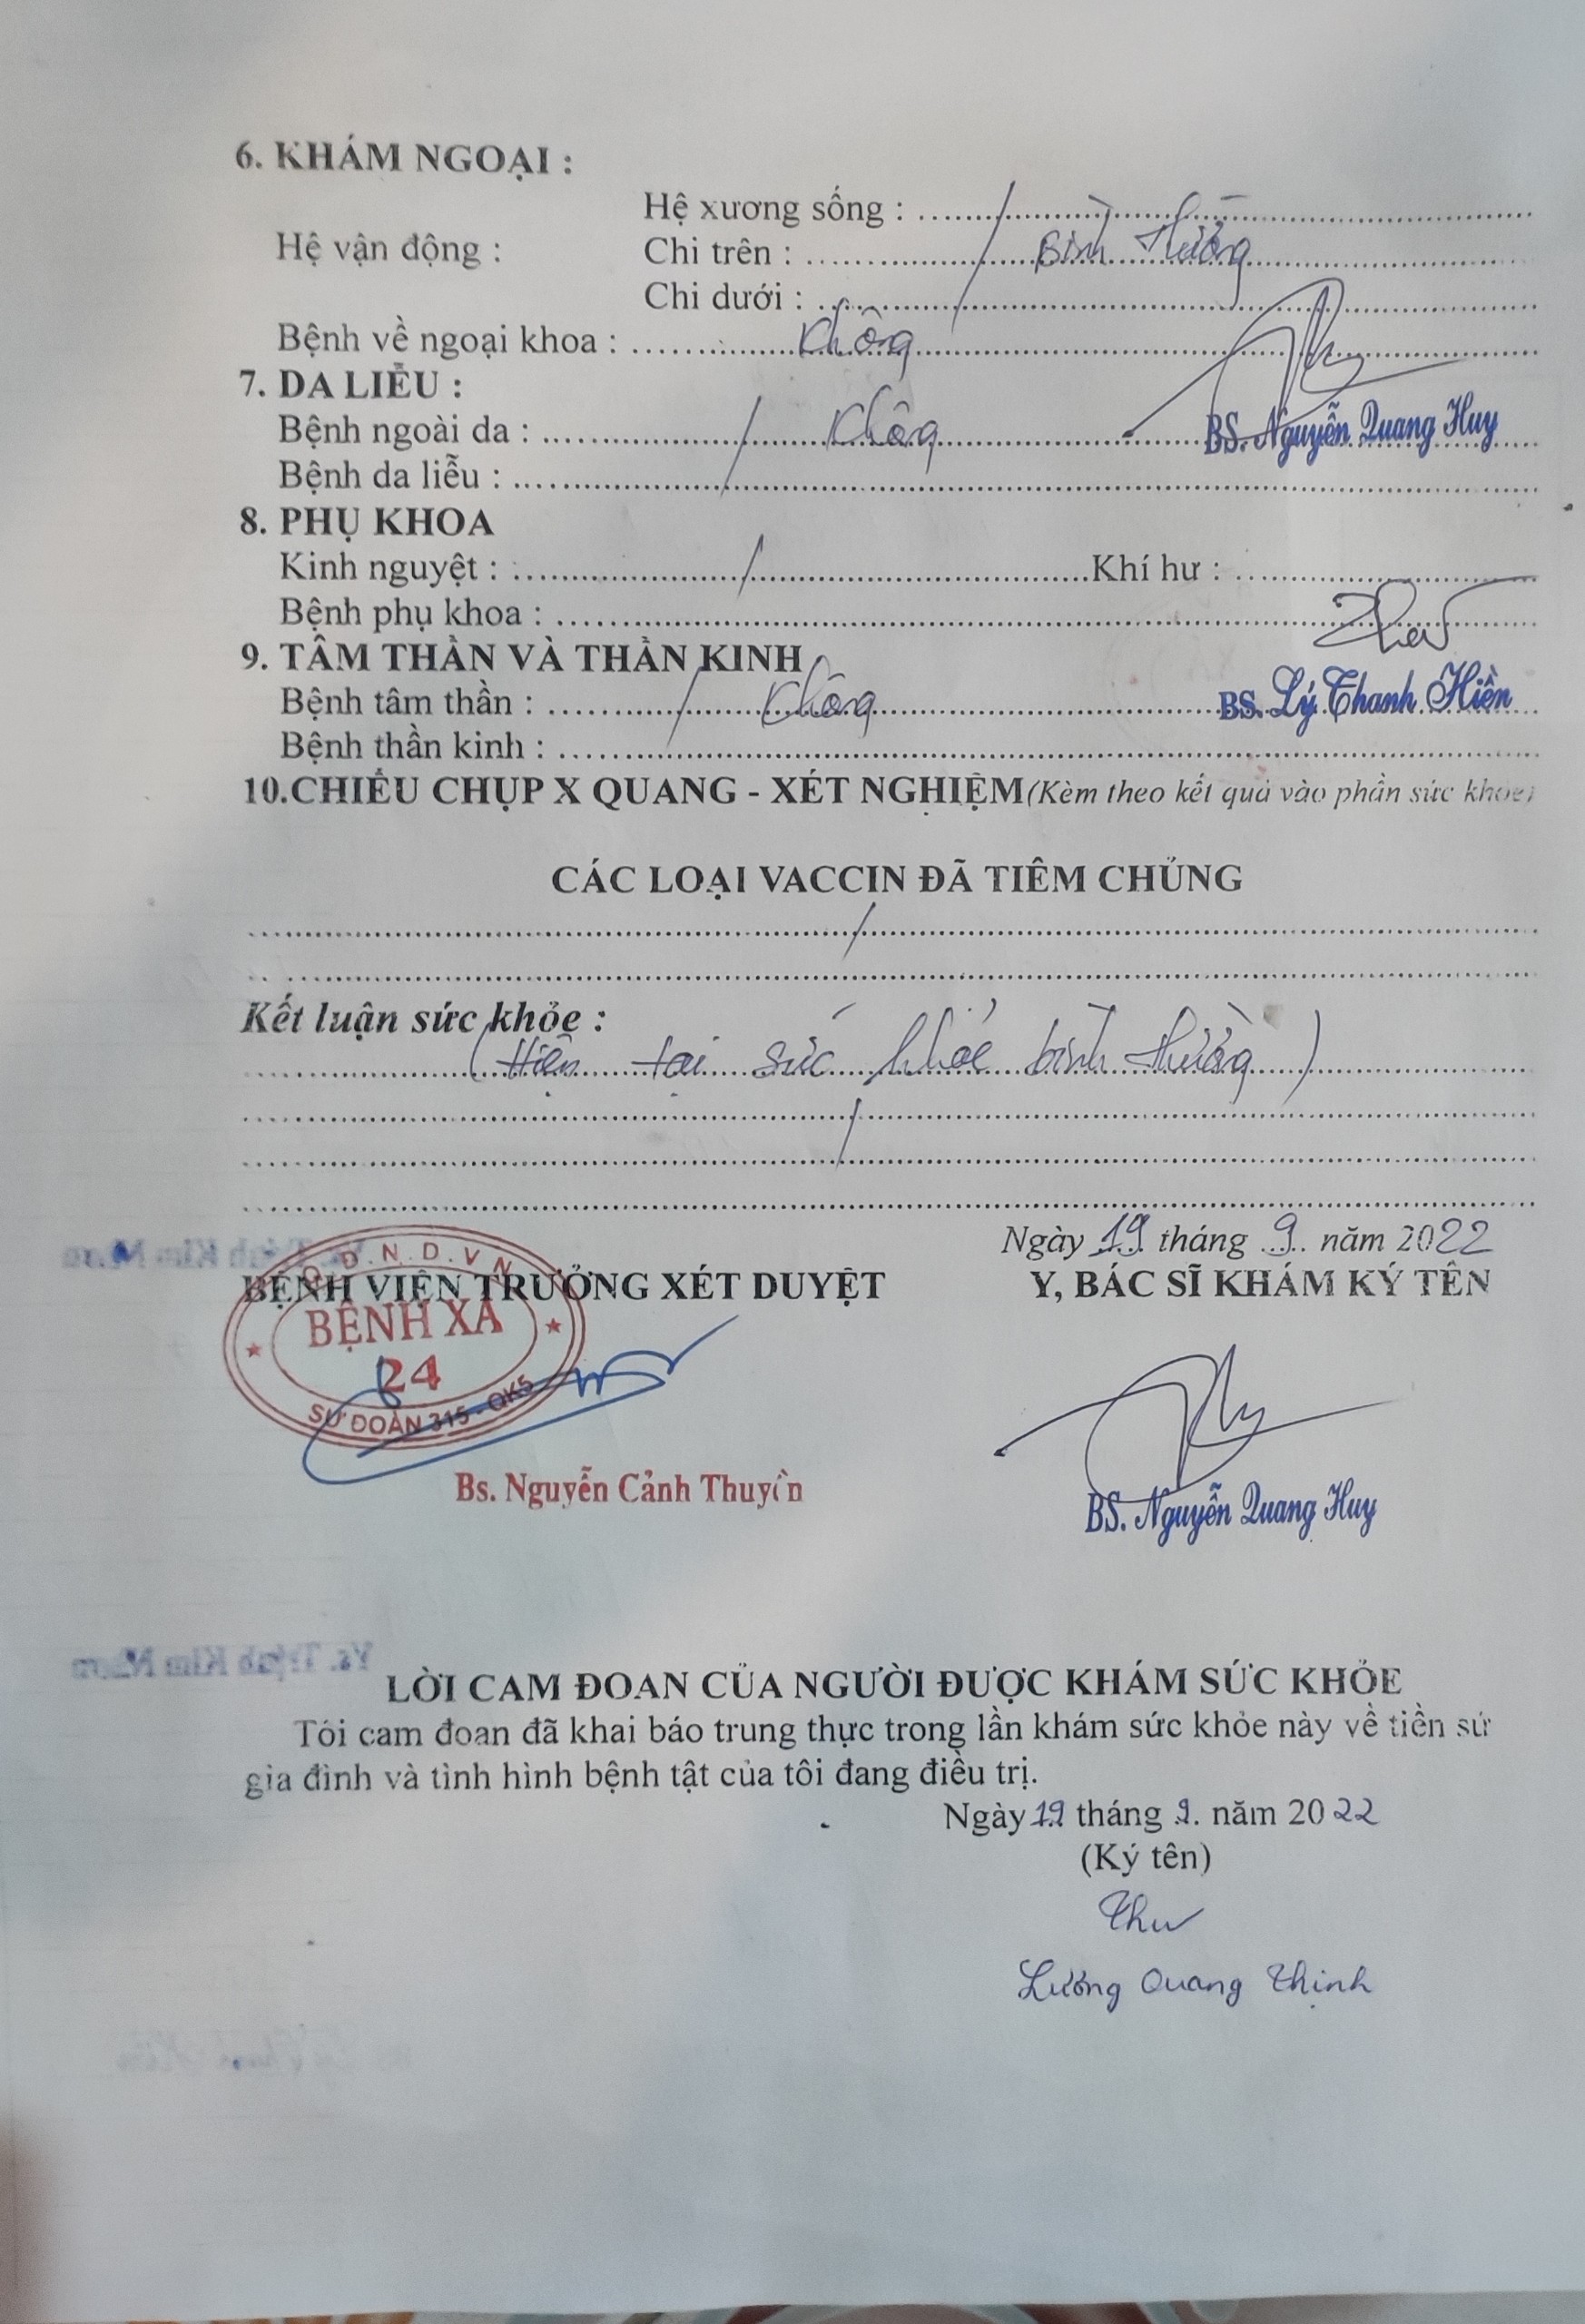 6. KHÁM NGOẠI :
Hệ xương sống : 
Hệ vận động : Chi trên : Bình thường
Chi dưới : 
Bệnh về ngoại khoa : Không
7. DA LIỄU :
BS. Nguyễn Quang Huy
Bệnh ngoài da : Không
Bệnh da liễu : 
8. PHỤ KHOA
Kinh nguyệt : Khí hư : 
Bệnh phụ khoa : 
9. TÂM THẦN VÀ THẦN KINH
Bệnh tâm thần : Không BS. Lý Thanh Hiền
Bệnh thần kinh : 
10.CHIẾU CHỤP X QUANG - XÉT NGHIỆM(Kèm theo kết quả vào phần sức khỏe)
CÁC LOẠI VACCIN ĐÃ TIÊM CHỦNG
Kết luận sức khỏe :
(Hiện tại sức khỏe bình thường)
Ngày 19 tháng 9 năm 2022
BỆNH VIỆN TRƯỞNG XÉT DUYỆT Y, BÁC SĨ KHÁM KÝ TÊN
Q.Đ.N.D.V.N
BỆNH XÁ
24
SƯ ĐOÀN 315 - QK5
Bs. Nguyễn Cảnh Thuyên
BS. Nguyễn Quang Huy
LỜI CAM ĐOAN CỦA NGƯỜI ĐƯỢC KHÁM SỨC KHỎE
Tôi cam đoan đã khai báo trung thực trong lần khám sức khỏe này về tiền sử
gia đình và tình hình bệnh tật của tôi đang điều trị.
Ngày 19 tháng 9. năm 2022
(Ký tên)
Lương Quang Thịnh